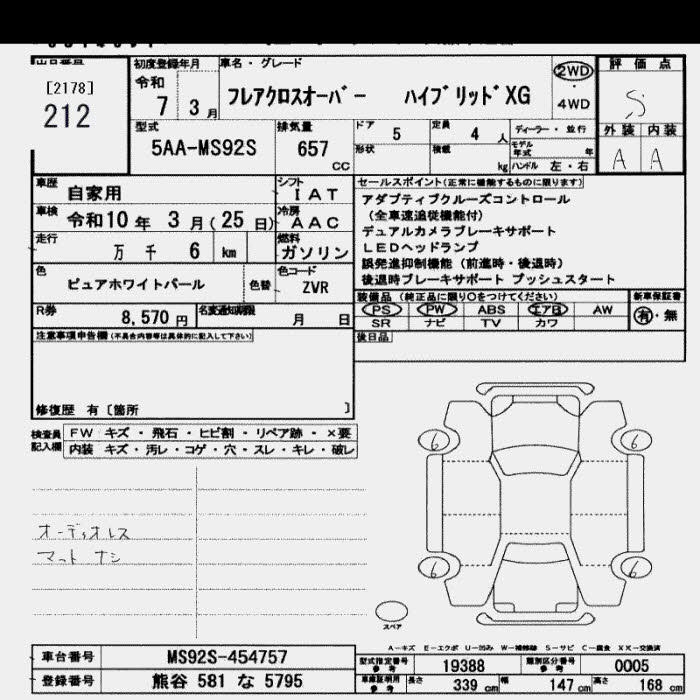 [2178]
212
初度登録年月
令和
7 3 月
車名・グレード
フレアクロスオーバー ハイブリッドXG
2WD
・
4WD
評価点
S
外装 内装
A A
型式
5AA-MS92S
排気量
657
CC
ドア
5
定員
4 人
形状
積載
kg
ディーラー・並行
モデル年式 年
ハンドル 左・右
車歴
自家用
シフト
IAT
車検
令和10年 3月(25日)
冷房
AAC
走行
万 千 6 km
燃料
ガソリン
色
ピュアホワイトパール
色替
色コード
ZVR
R券
8,570 円
名変通知期限
月 日
セールスポイント(正常に機能するものに限ります)
アダプティブクルーズコントロール
(全車速追従機能付)
デュアルカメラブレーキサポート
LEDヘッドランプ
誤発進抑制機能(前進時・後退時)
後退時ブレーキサポート プッシュスタート
装備品(純正品に限り○をつけてください)
PS PW ABS エアB AW
SR ナビ TV カワ
新車保証書
有・無
後日品
注意事項申告欄(不具合内容等は具体的に記入して下さい)
修復歴 有〔箇所 〕
検査員
記入欄
FW キズ・飛石・ヒビ割・リペア跡・×要
内装 キズ・汚レ・コゲ・穴・スレ・キレ・破レ
オーディオレス
マット ナシ
6 6
6 6
スペア
A−キズ E−エクボ U−凹み W−補修跡 S−サビ C−腐食 XX−交換済
車台番号
MS92S-454757
登録番号
熊谷 581 な 5795
型式指定番号
参考
19388
類別区分番号
参考
0005
車庫証明用
参考
長さ 339 cm 幅 147 cm 高さ 168 cm